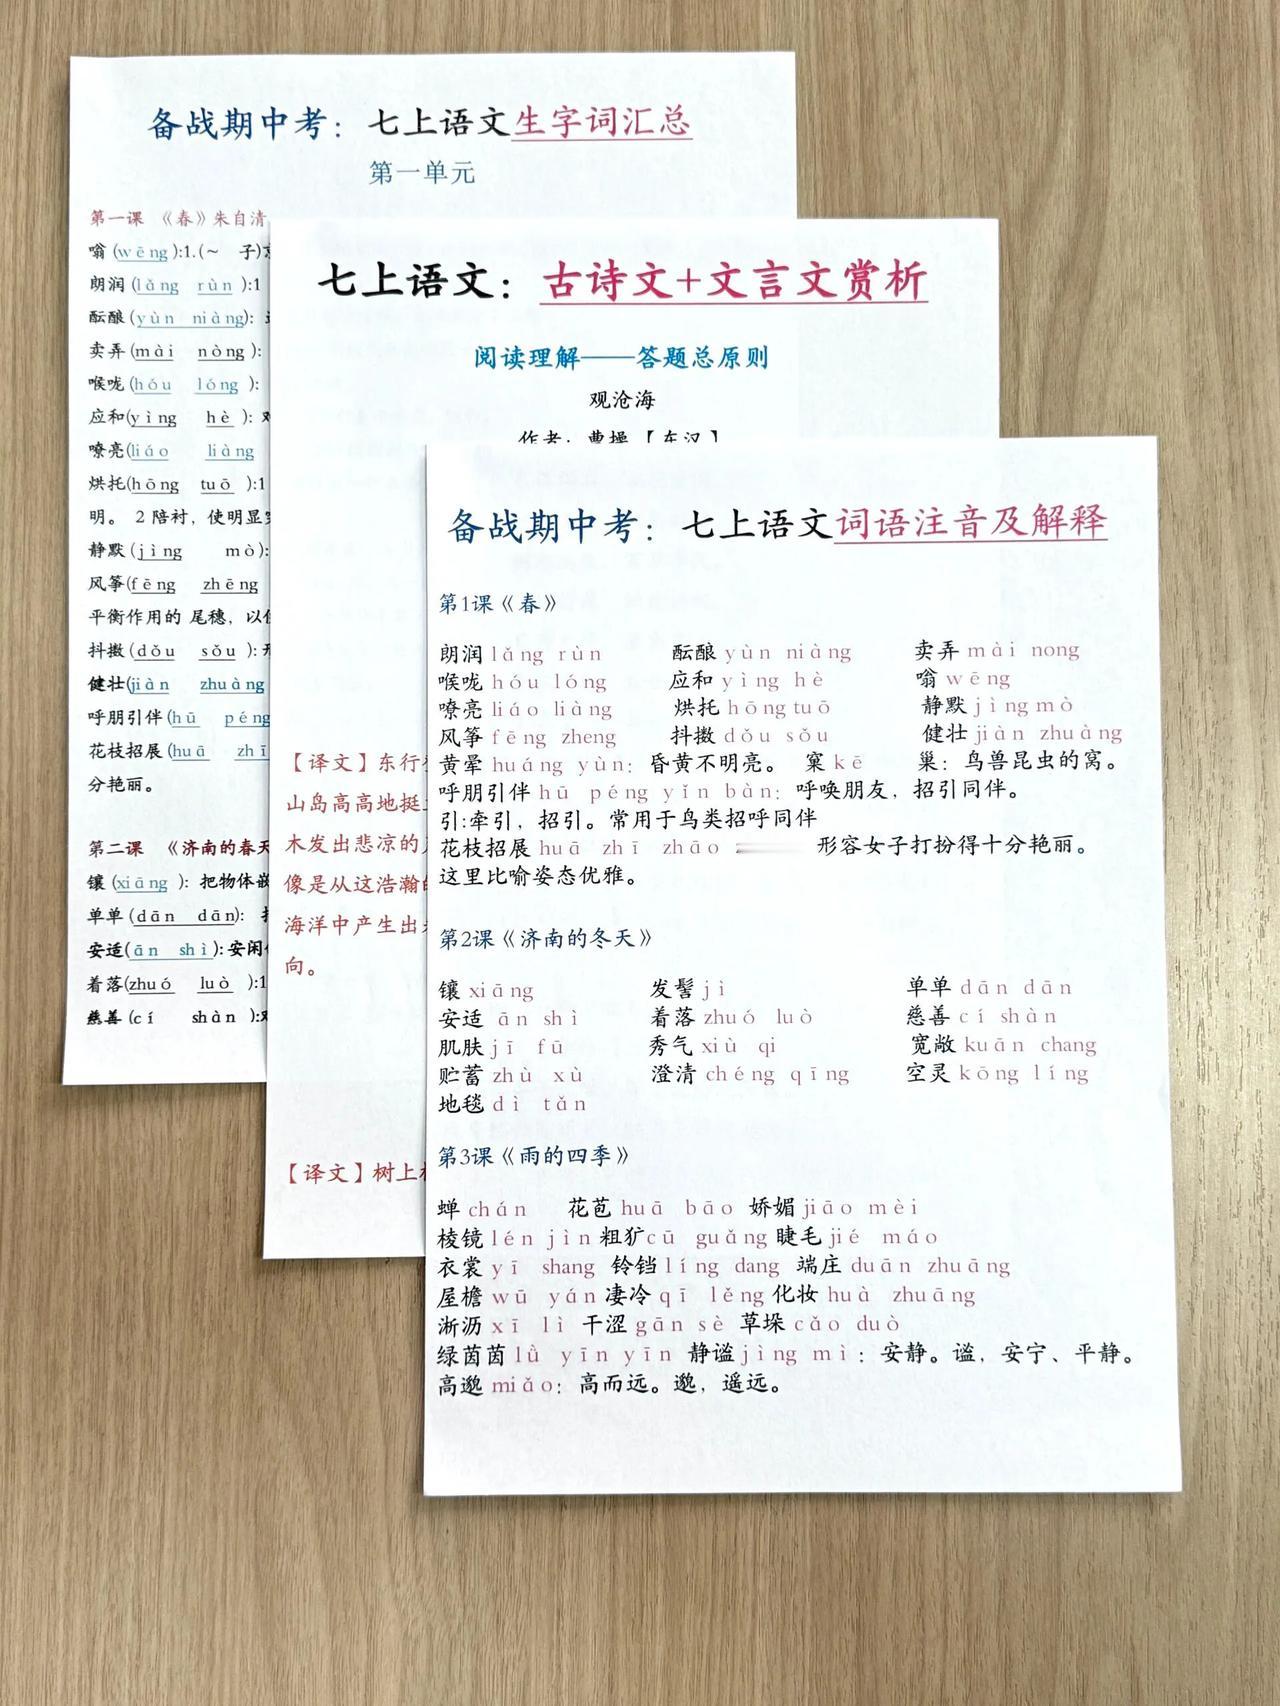 备战期中考：七上语文生字词汇总
第一单元
第一课 《春》朱自清
嗡(wēng):1.(～ 子)
朗润(lǎng rùn):1
酝酿(yùn niàng):
卖弄(mài nòng):
喉咙(hóu lóng):
应和(yìng hè):
嘹亮(liáo liàng
烘托(hōng tuō):1
明。 2 陪衬，使明显
静默(jìng mò):
风筝(fēng zhēng
平衡作用的 尾穗，以
抖擞(dǒu sǒu):
健壮(jiàn zhuàng
呼朋引伴(hū péng
花枝招展(huā zhī
分艳丽。
第二课 《济南的春天
镶(xiāng): 把物体嵌
单单(dān dān):
安适(ān shì):安闲
着落(zhuó luò):1
慈善(cí shàn):
七上语文：古诗文+文言文赏析
阅读理解——答题总原则
观沧海
作者：曹操【东汉】
【译文】东行
山岛高高地挺
木发出悲凉的
像是从这浩瀚
海洋中产生出
向。
【译文】树上
备战期中考：七上语文词语注音及解释
第1课《春》
朗润 lǎng rùn 酝酿 yùn niàng 卖弄 mài nong
喉咙 hóu lóng 应和 yìng hè 嗡 wēng
嘹亮 liáo liàng 烘托 hōng tuō 静默 jìng mò
风筝 fēng zheng 抖擞 dǒu sǒu 健壮 jiàn zhuàng
黄晕 huáng yùn：昏黄不明亮。 窠 kē 巢：鸟兽昆虫的窝。
呼朋引伴 hū péng yǐn bàn：呼唤朋友，招引同伴。
引:牵引，招引。常用于鸟类招呼同伴
花枝招展 huā zhī zhāo 形容女子打扮得十分艳丽。
这里比喻姿态优雅。
第2课《济南的冬天》
镶 xiāng 发髻 jì 单单 dān dān
安适 ān shì 着落 zhuó luò 慈善 cí shàn
肌肤 jī fū 秀气 xiù qi 宽敞 kuān chang
贮蓄 zhù xù 澄清 chéng qīng 空灵 kōng líng
地毯 dì tǎn
第3课《雨的四季》
蝉 chán 花苞 huā bāo 娇媚 jiāo mèi
棱镜 lén jìn 粗犷 cū guǎng 睫毛 jié máo
衣裳 yī shang 铃铛 líng dang 端庄 duān zhuāng
屋檐 wū yán 凄冷 qī lěng 化妆 huà zhuāng
淅沥 xī lì 干涩 gān sè 草垛 cǎo duò
绿茵茵 lǜ yīn yīn 静谧 jìng mì：安静。谧，安宁、平静。
高邈 miǎo：高而远。邈，遥远。